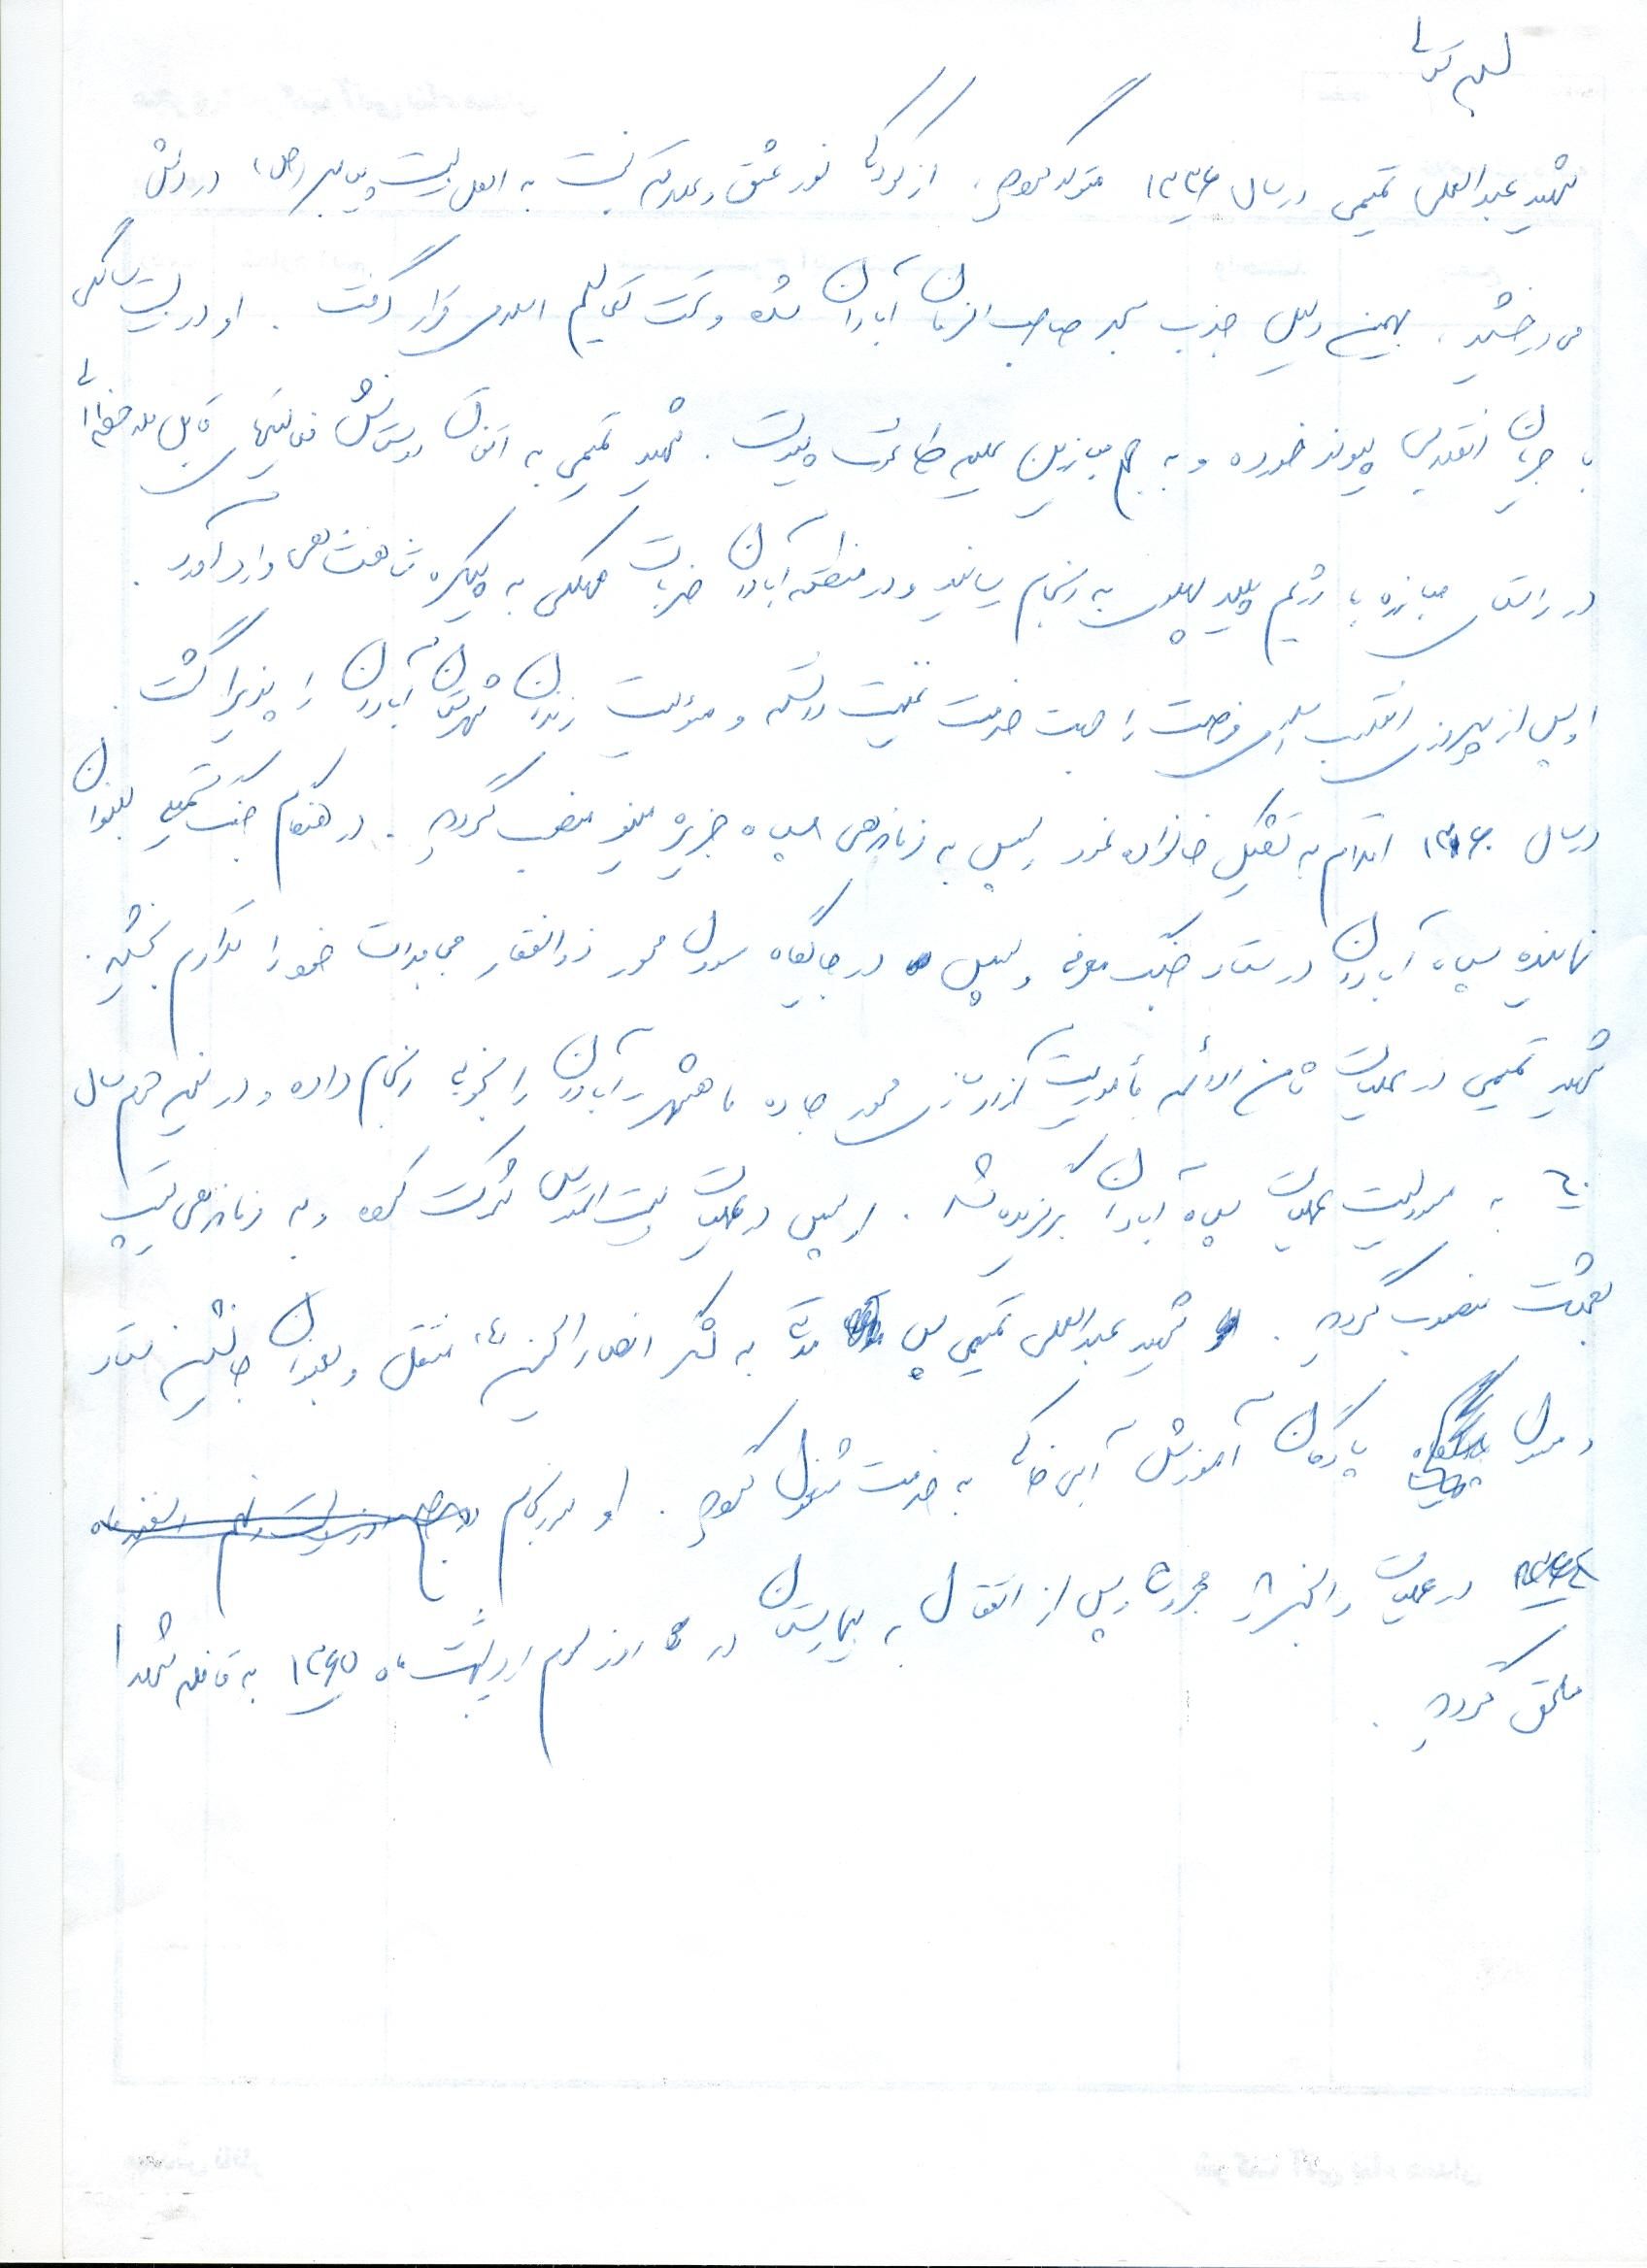 بسمه تعالی
شهید عبدالعلی تمیمی در سال ۱۳۳۶ متولد گردید، از کودکی نور عشق و علاقه نسبت به اهل بیت پیامبر (ص) در دلش
می درخشید، بهمین دلیل جذب مسجد صاحب الزمان آبادان شده و تحت تعالیم اسلامی قرار گرفت. او در بیست سالگی
با جریان انقلابی پیوند خورده و به جمع مبارزین علیه طاغوت پیوست. شهید تمیمی به اتفاق دوستانش فعالیتهای قابل ملاحظه ای
در راستای مبارزه با رژیم پلید پهلوی به انجام رسانید و در منطقه آبادان ضربات مهلکی به پیکره شاهنشاهی وارد آورد.
او پس از پیروزی انقلاب اسلامی فرصت را جهت خدمت غنیمت دانسته و مسؤلیت زندان شهرستان آبادان را پذیرا گشت.
در سال ۱۳۶۰ اقدام به تشکیل خانواده نمود سپس به فرماندهی سپاه جزیره مینو منصوب گردید. در هنگام جنگ تحمیلی بعنوان
نماینده سپاه آبادان در ستاد جنگ معرفی و سپس در جایگاه مسئول محور ذوالفقار مجاهدات خود را تداوم بخشید.
شهید تمیمی در عملیات ثامن الائمه مأموریت آزادسازی محور جاده ماهشهر آبادان را بخوبی انجام داده و در نیمه دوم سال
۶۰ به مسئولیت عملیات سپاه آبادان برگزیده شد. او سپس در عملیات بیت المقدس شرکت کرده و به فرماندهی تیپ
بعثت منصوب گردید. شهید عبدالعلی تمیمی پس مدتی به لشگر انصار الحسین (ع) منتقل و بعنوان جانشین ستاد
و مسئول پادگان آموزش آبی خاکی به خدمت مشغول گردید. او سرانجام
در عملیات والفجر ۸ مجروح و پس از انتقال به بیمارستان در روز سوم اردیبهشت ماه ۱۳۶۵ به قافله شهدا
ملحق گردید.